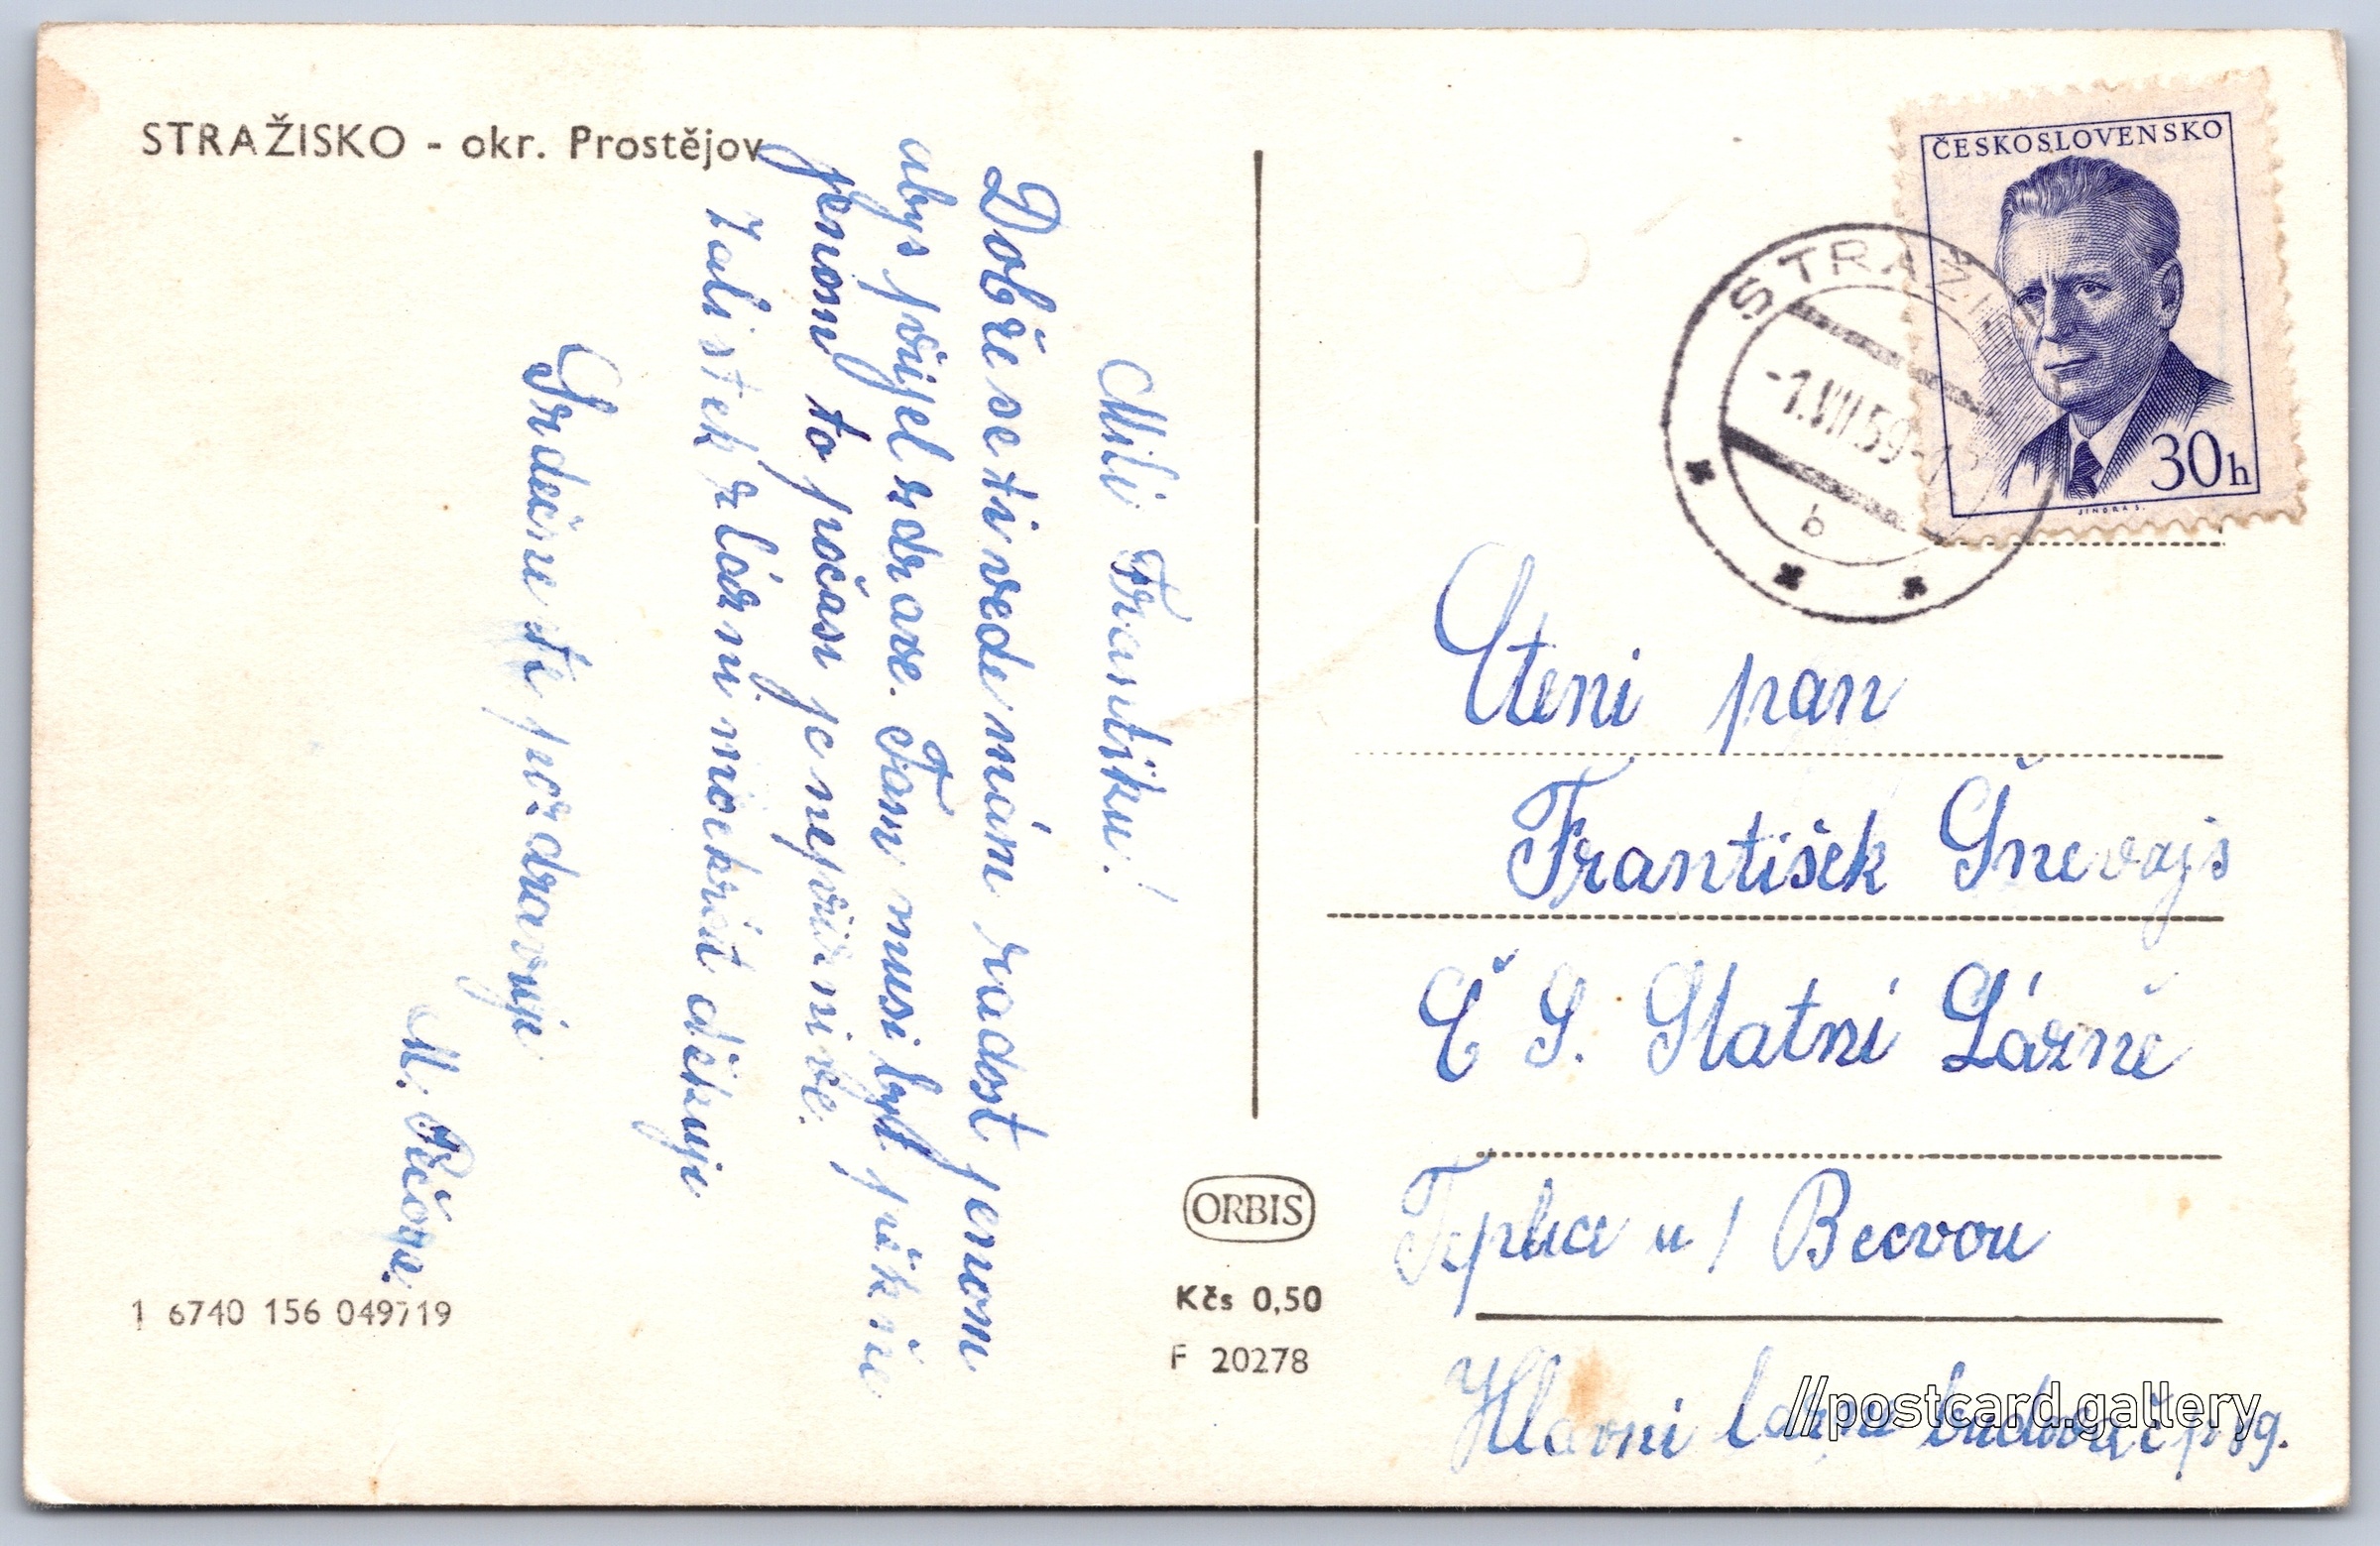 STRAŽISKO - okr. Prostějov
Milí Františku!
Dobře se ti vede mám radost jenom
abys přijel zdrave. Tam musi byt pěkně
jenom to počasi je nepřiznive.
Za listek z lázni mockrát děkuji
Srdečne tě pozdravuji
M.
1 6740 156 049719
ORBIS
Kčs 0,50
F 20278
ČESKOSLOVENSKO
30h
JINDRA S.
STRAŽI
-1.VII.59-
b
Cteni pan
František Šnevajs
Č S. Statni Lázně
Teplice n/ Becvou
Hlavni lazne budova čp 89.
//postcard.gallery